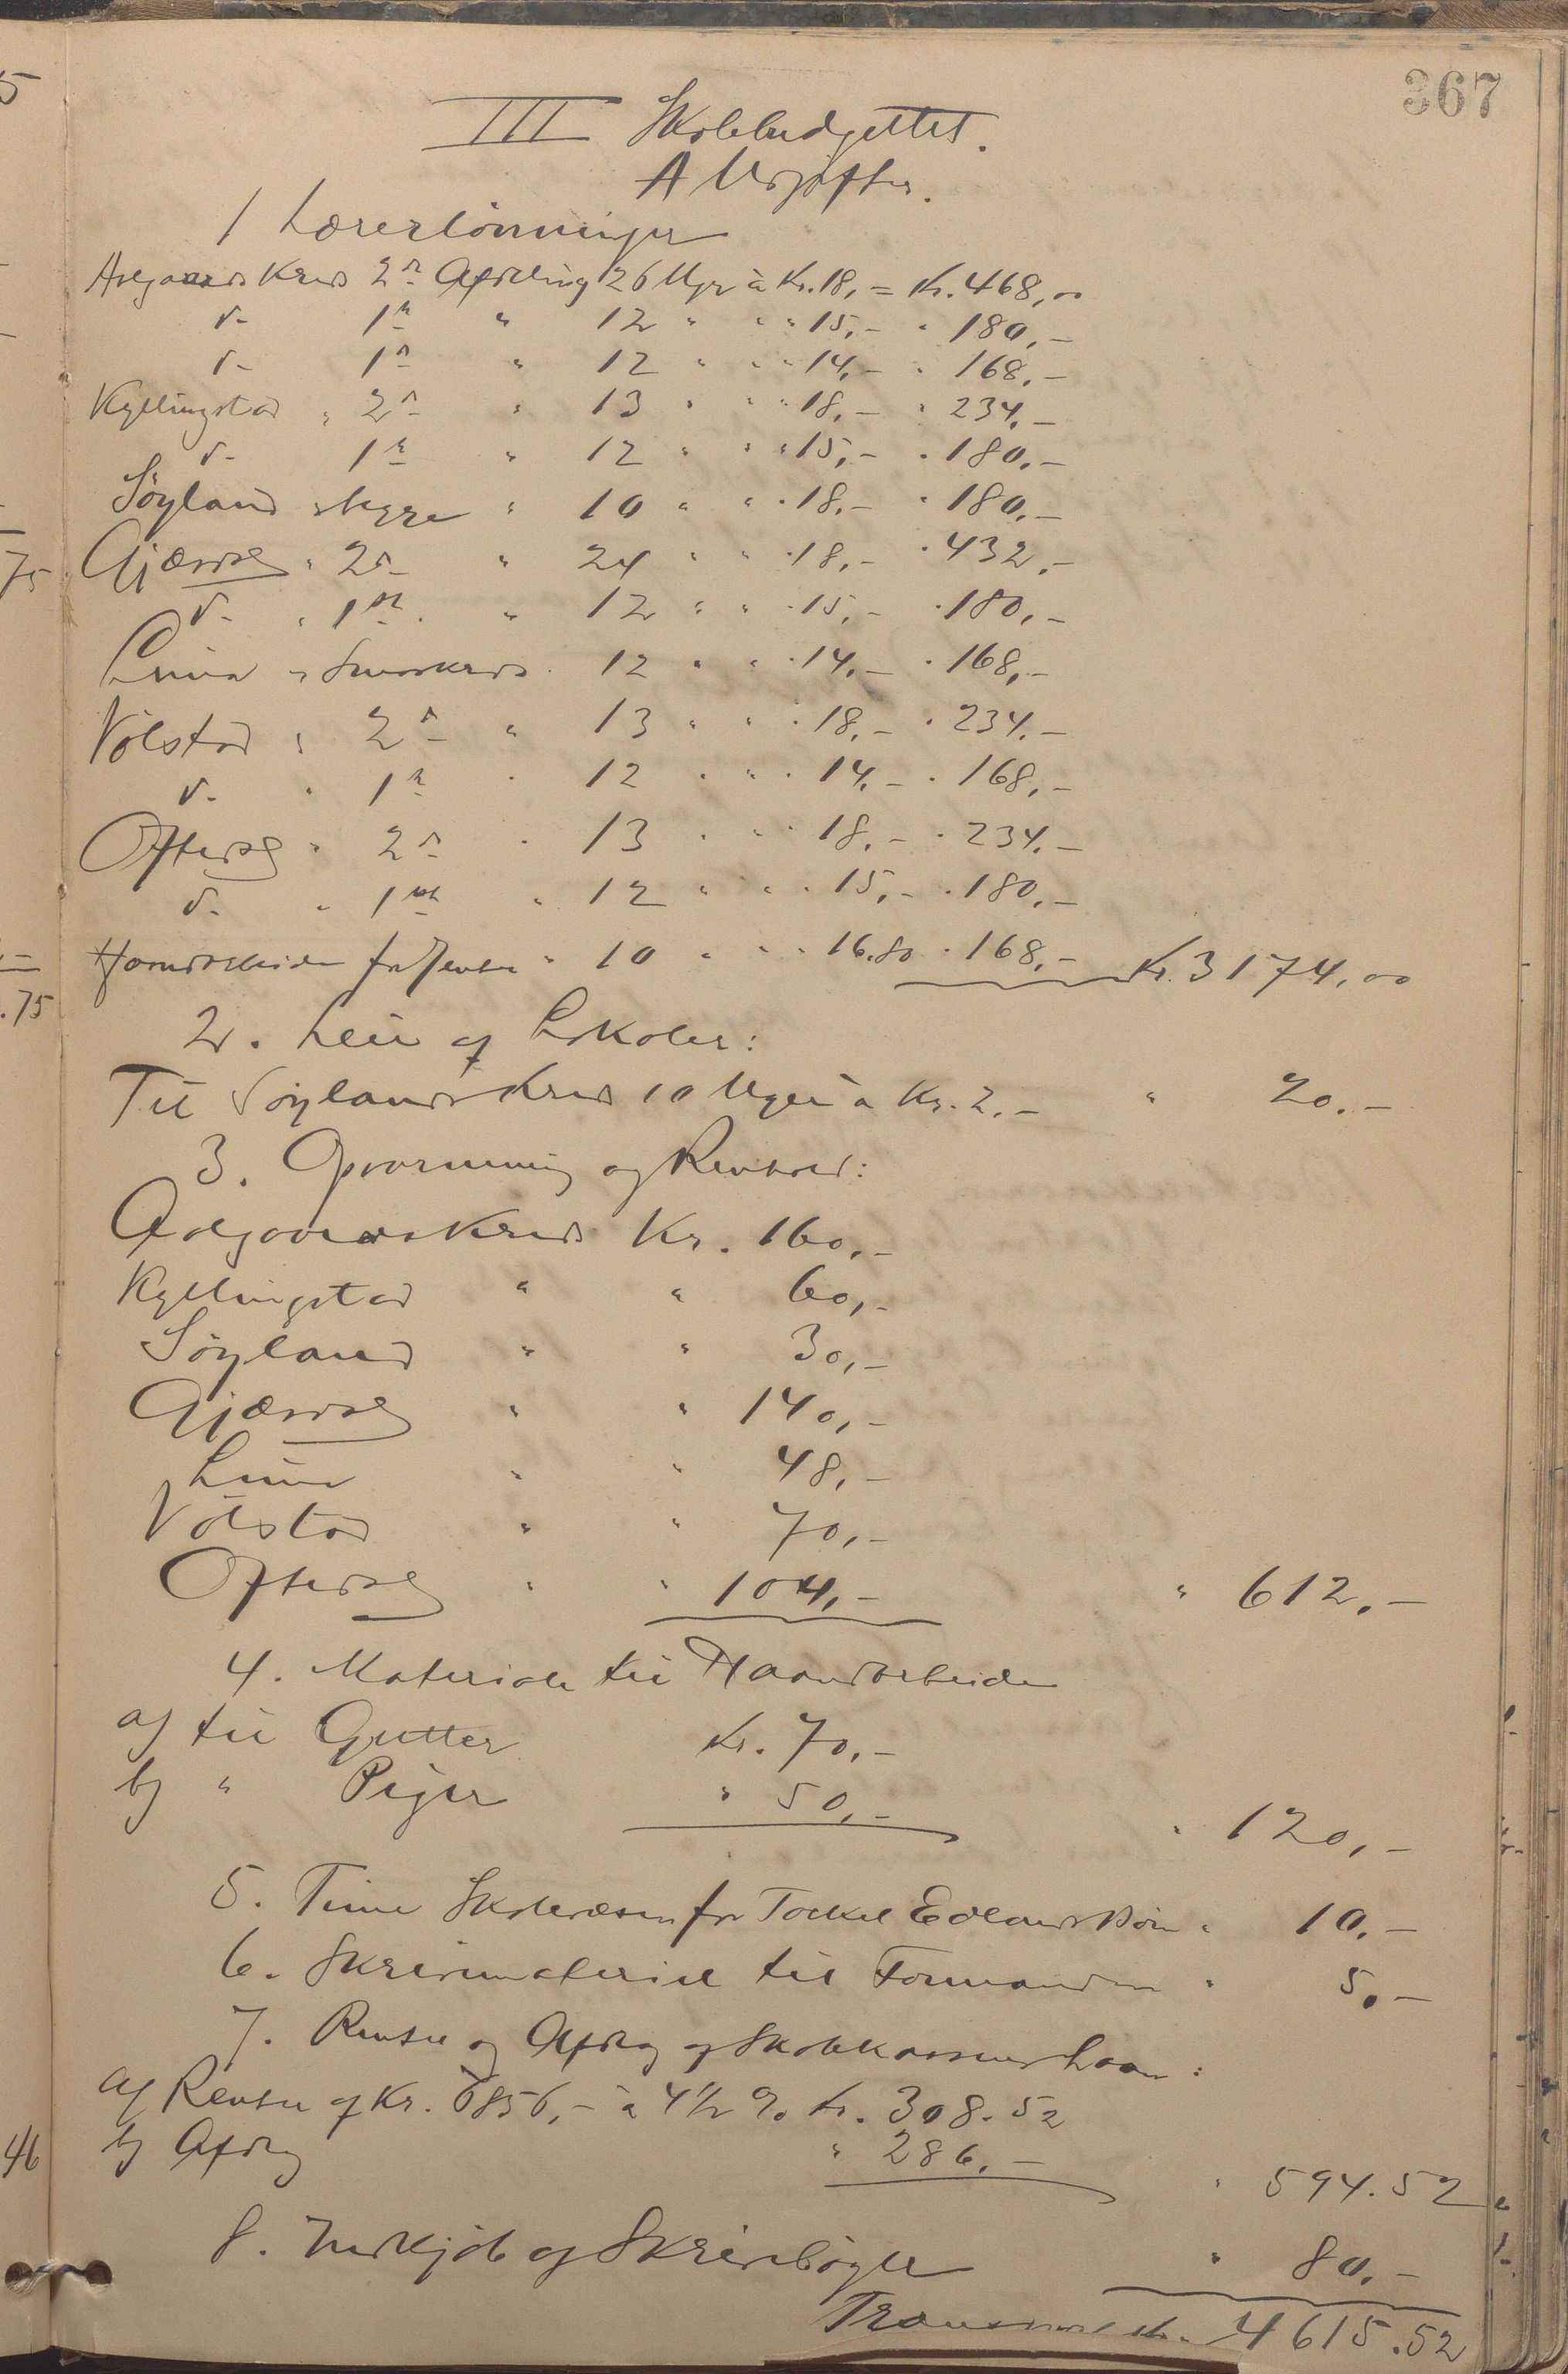 367
III Skolebudgettet.
A Udgifter.
1 Lærerlönninger
Aalgaards Kreds 2den Afdeling 26 Uger à Kr. 18,- = Kr. 468,00
d- 1ste " 12 " " " 15,- " 180,-
d- 1ste " 12 " " " 14,- " 168,-
Kyllingstad " 2den " 13 " " " 18,- " 234,-
d- 1ste " 12 " " " 15,- " 180,-
Söyland " begge " 10 " " " 18,- " 180,-
Gjæsdal " 2den " 24 " " " 18,- " 432,-
d- " 1ste " 12 " " " 15,- " 180,-
Lima " Smaakreds 12 " " " 14,- " 168,-
Völstad " 2den " 13 " " " 18,- " 234,-
d- " 1ste " 12 " " " 14,- " 168,-
Oftedal " 2den " 13 " " " 18,- " 234,-
d- " 1ste " 12 " " " 15,- " 180,-
Haandarbeide for Jenter " 10 " " " 16.80 " 168,- Kr. 3174,00
2. Leie af Lokaler:
Til Söylands Kreds 10 Uger à Kr. 2,- " 20.-
3. Opvarmning og Renhold:
Aalgaards Kreds Kr. 160,-
Kyllingstad " " 60,-
Söyland " " 30,-
Gjæsdal " " 140,-
Lima " " 48,-
Völstad " " 70,-
Oftedal " " 104,- " 612,-
4. Materiale til Haandarbeide
a) til Gutter Kr. 70,-
b) " Piger " 50,- " 120,-
5. Time Skolevæsen for Torkel Edlands Börn " 10,-
6. Skrivemateriel til Formanden " 5,-
7. Renter og Afdrag af Skolekassens Laan:
a) Renter af Kr. 6856,- à 4½ % Kr. 308.52
b) Afdrag " 286,- " 594.52
8. Indkjöb af Skrivebøger " 80,-
Transport Kr. 4615.52
5
75
.75
46